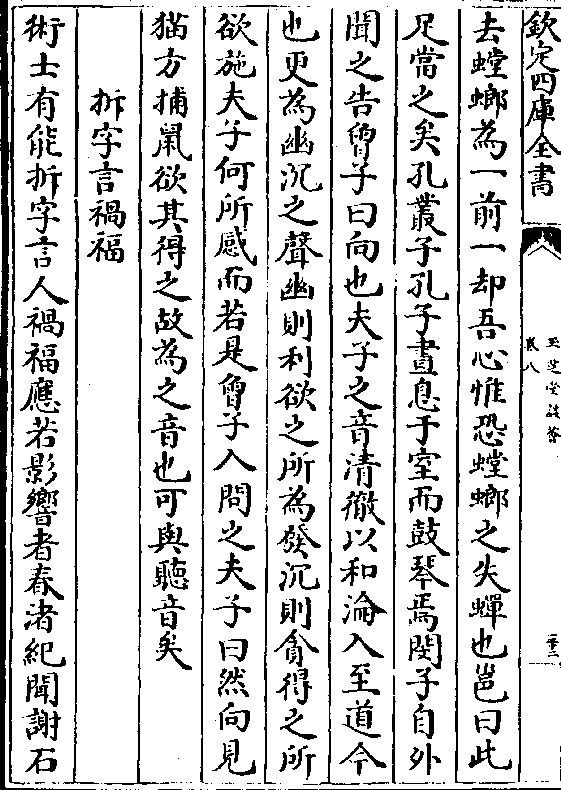 欽定四庫全書
玉芝堂談薈
卷八
二十二
去螳螂為一前一却吾心惟恐螳螂之失蟬也邕曰此
足當之矣孔叢子孔子晝息于室而鼓琴焉閔子自外
聞之告曾子曰向也夫子之音清徹以和淪入至道今
也更為幽沉之聲幽則利欲之所為發沉則貪得之所
欲施夫子何所感而若是曾子入問之夫子曰然向見
猫方捕鼠欲其得之故為之音也可與聽音矣
拆字言禍福
術士有能拆字言人禍福應若影響者春渚紀聞謝石